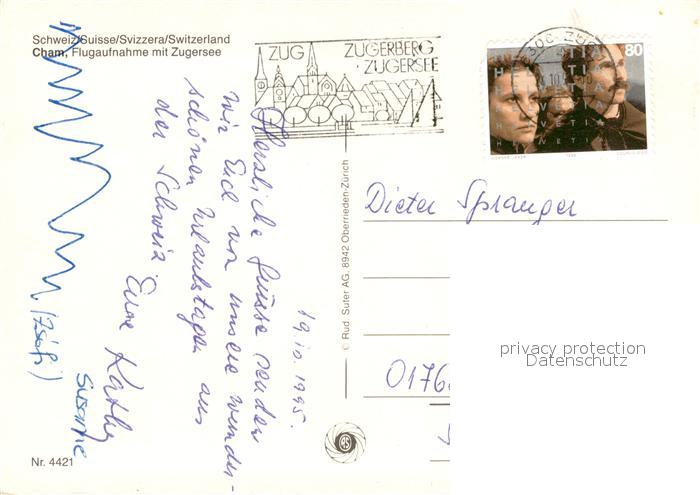 Schweiz/Suisse/Svizzera/Switzerland
Cham, Flugaufnahme mit Zugersee
ZUG
ZUGERBERG
ZUGERSEE
80
HELVETIA
19.10.1995.
Herzliche Grüsse senden
wir Euch von unsere wunder-
schönen Urlaubstagen aus
der Schweiz.
Eure Kathy
Susanne
(Zsófi)
© Rud. Suter AG, 8942 Oberrieden-Zürich
Dieter Spranger
0176
privacy protection
Datenschutz
Nr. 4421